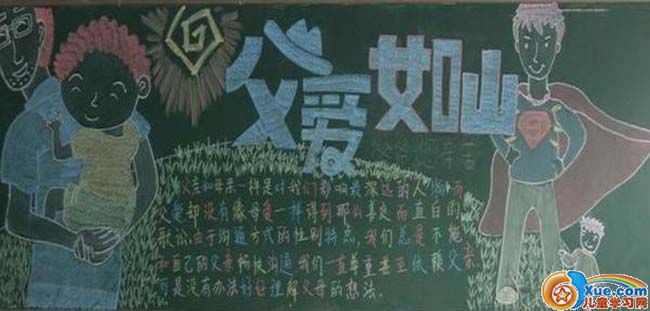 父爱如山
父亲和母亲一样是对我们影响最深远的人物而
父爱却没有像母爱一样得到那么喜良而直白的
歌讼由于沟通方式的性别特点,我们总是不能
和自己的父亲畅快沟通我们一直尊重甚至依赖父亲
可是没有办法好好理解父母的想法.
Xue.com
儿童学习网